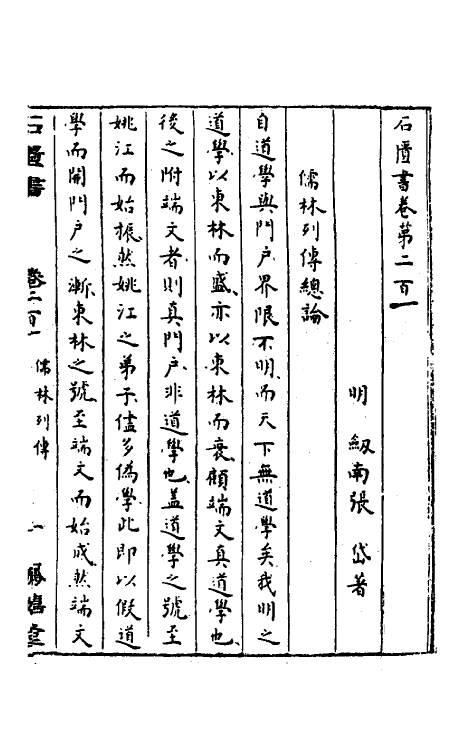 石匱書卷第二百一
明 劔南張 岱著
儒林列傳總論
自道學與門戶界限不明而天下無道學矣我明之
道學以東林而盛亦以東林而衰顧端文真道學也
後之附端文者則真門戶非道學也蓋道學之號至
姚江而始振然姚江之弟子儘多偽學此即以假道
學而開門戶之漸東林之號至端文而始成然端文
石匱書 卷二百一 儒林列傳 一